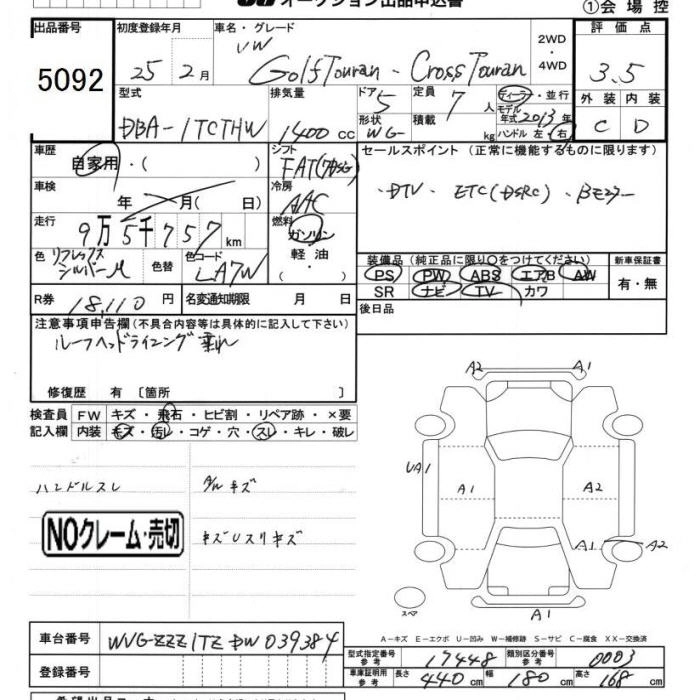 オークション出品申込書
①会場控
出品番号 初度登録年月 車名・グレード 2WD 4WD 評価点
5092 25年2月 VW GolfTouran - CrossTouran 3.5
型式 排気量 ドア 定員 ディーラー・並行 外装 内装
DBA-1TCTHW 1400cc 5 7人 モデル年式2013年 C D
形状 WG 積載 kg ハンドル 左・右
車歴 シフト セールスポイント(正常に機能するものに限ります)
自家用・( ) FAT(7DSG)
車検 年 月( 日) 冷房 AAC ・DTV ・ETC(DSRC)
走行 9万5千757km 燃料 ガソリン・軽油・
色 リフレックスシルバーM 色替 色コード LA7W
装備品(純正品に限り○をつけてください) 新車保証書
PS PW ABS エアB AW 有・無
SR ナビ TV カワ
R券 18,110円 名変通知期限 月 日 後日品
注意事項申告欄(不具合内容等は具体的に記入して下さい)
ルーフヘッドライニング垂れ
修復歴 有〔箇所 〕
検査員 FW キズ・飛石・ヒビ割・リペア跡・×要
記入欄 内装 キズ・汚レ・コゲ・穴・スレ・キレ・破レ
ハンドルスレ 内ハリキズ
NOクレーム・売切
A2 A1
UA1 A1 A2
A1 A2
スペア A1
A-キズ E-エクボ U-凹み W-補修跡 S-サビ C-腐食 XX-交換済
車台番号 WVGZZZ1TZDW039384
型式指定番号 参考 17448 類別区分番号 参考 0003
登録番号
車庫証明用 参考 長さ 440cm 幅 180cm 高さ 168cm